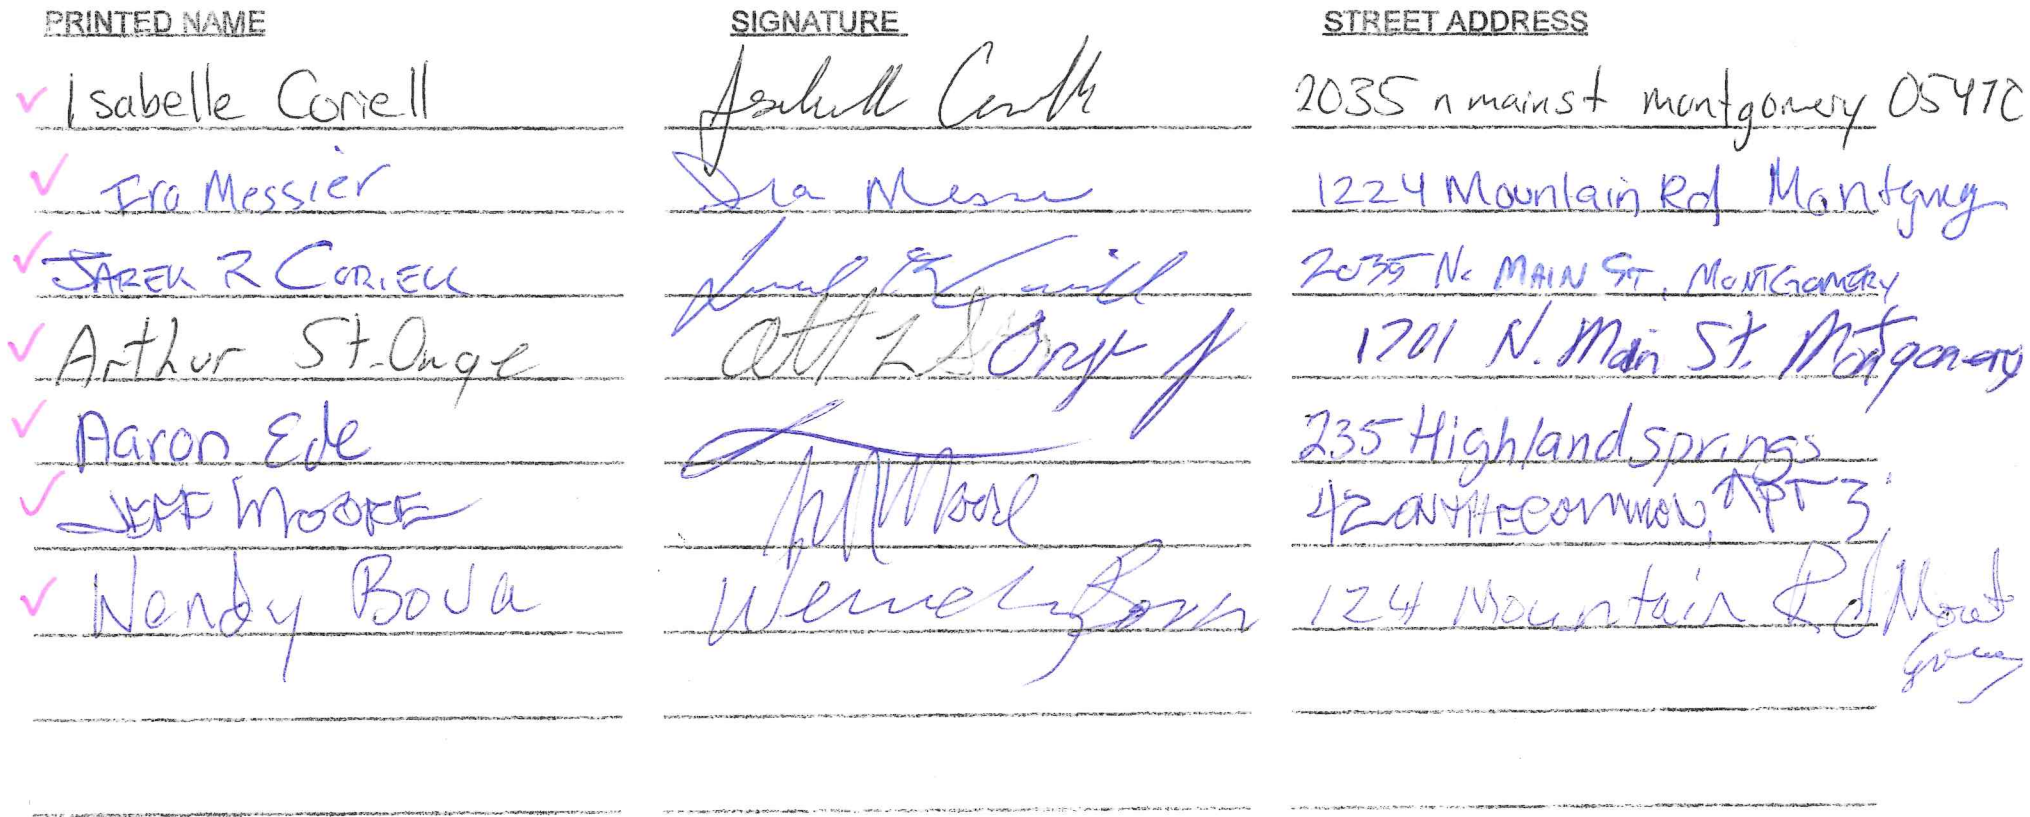 PRINTED NAME SIGNATURE STREET ADDRESS
Isabelle Coriell 2035 n main st montgomery 05470
Ira Messier Ira Messier 1224 Mountain Rd Montgomery
JAREK R CORIELL 2035 N. MAIN ST, MONTGOMERY
Arthur St.Onge 1701 N. Main St. Montgomery
Aaron Ede 235 Highland springs
JEFF MOORE Jeff Moore 42 ON THE COMMON, APT 3
Wendy Bova Wendy Bova 124 Mountain Rd Mont
gomery